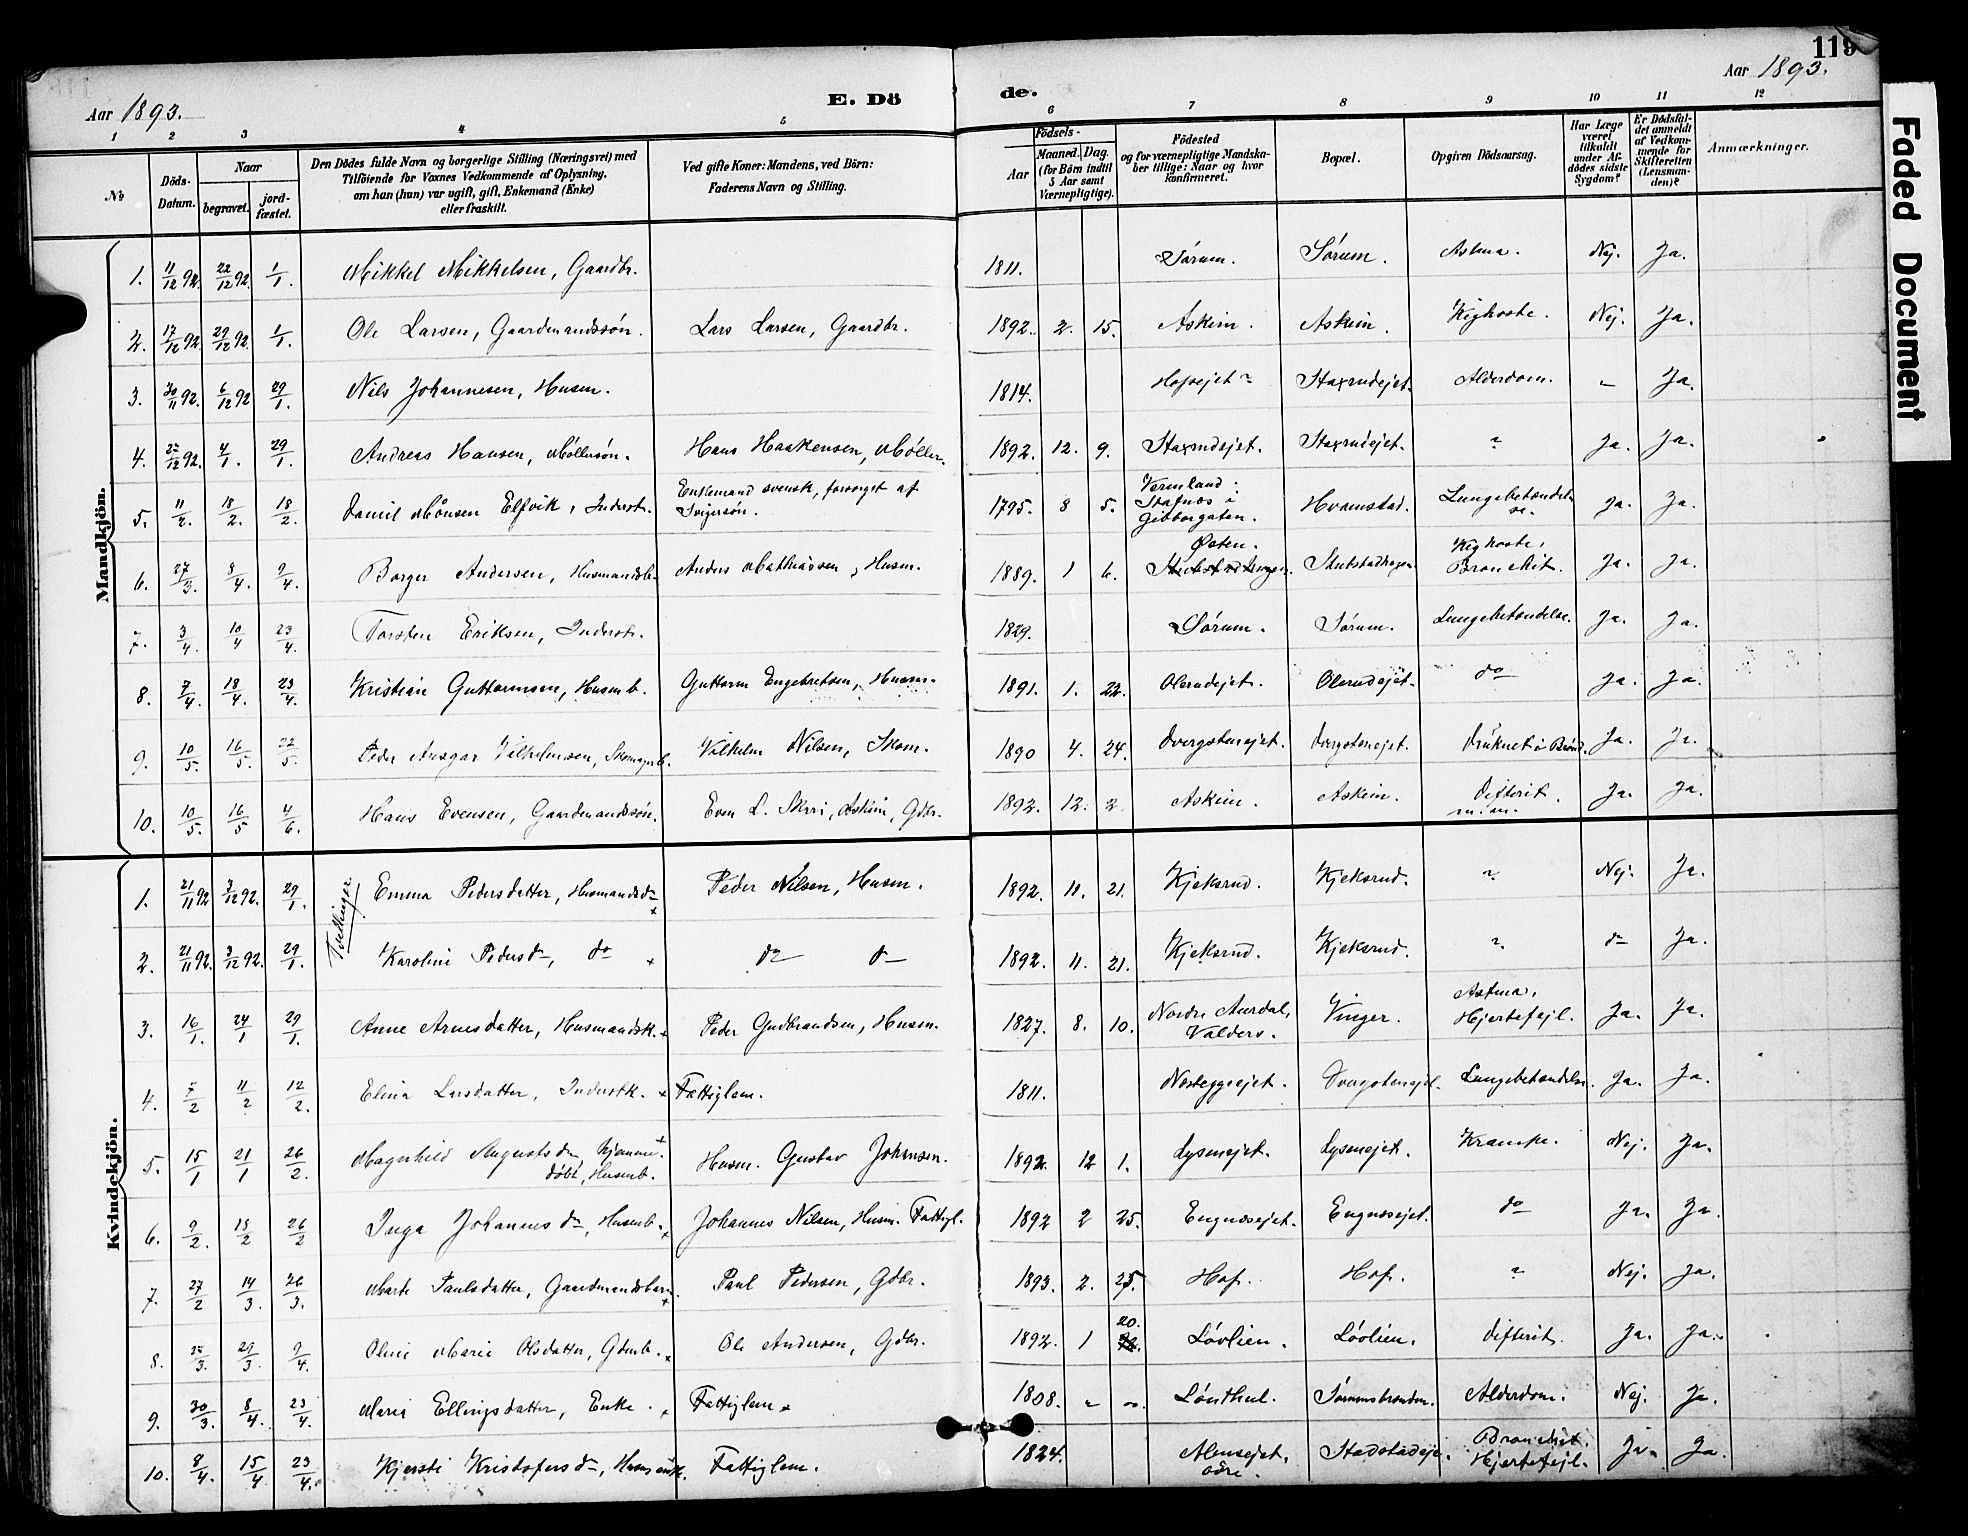 119
Aar 1893.
E. Döde.
Aar 1893.
1 2 3 4 5 6 7 8 9 10 11 12
No
Döds-Datum.
Naar
begravet.
jord-fæstet.
Den Dödes fulde Navn og borgerlige Stilling (Næringsvei) med
Tilföiende for Voxnes Vedkommende af Oplysning,
om han (hun) var ugift, gift, Enkemand (Enke)
eller fraskilt.
Ved gifte Koner: Mandens, ved Börn:
Faderens Navn og Stilling.
Födsels-
Aar
Maaned. Dag.
(for Börn indtil
5 Aar samt
Værnepligtige).
Födested
og for værnepligtige Mandska-
ber tillige: Naar og hvor
konfirmeret.
Bopæl.
Opgiven Dödsaarsag.
Har Læge
været
tilkaldt
under Af-
dödes sidste
Sygdom?
Er Dödsfal-
det anmeldt
af Vedkom-
mende for
Skifteretten
(Lensman-
den)?
Anmærkninger.
Faded Document
Mandkjön.
1. 11/12 92. 22/12 92. 1/1. Mikkel Mikkelsen, Gaardbr. 1811. Sørum. Sørum. Astma. Nej. Ja.
2. 17/12 92. 29/12 92. 1/1. Ole Larsen, Gaardmandssøn. Lars Larsen, Gaardbr. 1892. 2. 15. Askim. Askim. Kighoste. Nej. Ja.
3. 30/11 92. 6/12 92 29/1. Nils Johannesen, Husm. 1814. Hofsejet Staxrudejet. Alderdom. Ja.
4. 22/12 92. 4/1. 29/1. Andreas Hansen, Møllersøn. Hans Haakensen, Møller. 1892. 12. 9. Staxrudejet. Staxrudejet. Ja. Ja.
5. 11/2. 18/2. 18/2. Daniel Månsen Elfvik, Inderst. Enkemand svensk, forsørget af
Svigersøn. 1795. 8 5. Vermland:
Stafnæs i
Gibborgaten. Hvamstad. Lungebetændel-
se. Ja. Ja.
6. 27/3. 8/4. 9/4. Borger Andersen, Husmandsb. Anders Mathiassen, Husm. 1889. 1 6. Østen.
Stubstadhagen. Stubstadhagen. Kighoste,
Bronchit. Ja. Ja.
7. 3/4. 10/4 23/4. Torsten Eriksen, Inderst. 1829. Sørum. Sørum. Lungebetændelse. Ja. Ja.
8. 7/4. 18/4. 23/4. Kristian Guttormsen, Husmb. Guttorm Engebretsen, Husm. 1891. 1. 22. Olerudejet. Olerudejet. do Ja. Ja.
9. 10/5. 16/5. 22/5. Peder Ansgar Vilhelmsen, Skomagerb. Vilhelm Nilsen, Skom. 1890 4. 24. Dvergstenejet. Dvergstenejet. Druknet i Brønd. Ja. Ja.
10. 10/5. 16/5 4/6. Hans Evensen, Gaardmandssøn. Even L. Askim, Gdbr. 1892. 12. 2 Askim. Askim. Difterit.
m.m. Ja. Ja.
Kvindekjön.
Tvillinger
1. 21/11 92 3/12 92. 29/1. Emma Pedersdatter, Husmandsd. Peder Nilsen, Husm. 1892. 11. 21. Kjeksrud. Kjeksrud. Nej. Ja.
2. 21/11 92. 3/12 92. 29/1. Karoline Pedersd, do do do 1892. 11. 21. Kjeksrud. Kjeksrud. do Ja.
3. 16/1. 24/1 29/1. Anne Arnesdatter, Husmandsk. Peder Gudbrandsen, Husm. 1827. 8. 10. Nordre Aurdal,
Valders. Vinger. Astma,
Hjertefejl. Ja. Ja.
4. 5/2 11/2 12/2. Elina Larsdatter, Inderstk. Fattiglem. 1811. Nøsteggsejet. Dvergstenejet. Lungebetændelse. Ja. Ja.
5. 15/1 21/1 26/2. Magnhild Augustsd, hjemme-
døbt, Husmb. Husm. Gustav Johansen. 1892. 12 1. Lysenejet. Lysenejet. Krampe. Nej. Ja.
6. 9/2. 18/2 26/2 Inga Johannesd, Husmb. Johannes Nilsen, Husm. Fattigl. 1892 2 25. Engnæsejet. Engnæsejet. do Ja. Ja.
7. 27/2 14/3. 26/3. Marte Paulsdatter, Gaardmandsbarn. Paul Pedersen, Gdbr. 1893. 2. 25. Hof. Hof. Nej. Ja.
8. 25/3. 29/3. 9/4. Oline Marie Olsdatter, Gdmb. Ole Andersen, Gdbr. 1892. 1 20. Løvlien. Løvlien. Difterit. Ja. Ja.
9. 30/3. 8/4. 23/4. Maria Ellingsdatter, Enke. Fattiglem. 1808. Alderdom. Nej. Ja.
10. 8/4. 15/4 23/4. Kjersti Kristofersd, Husmenk. Fattiglem. 1824. Stadstadeje. Bronchit.
Hjertefejl. Ja. Ja.